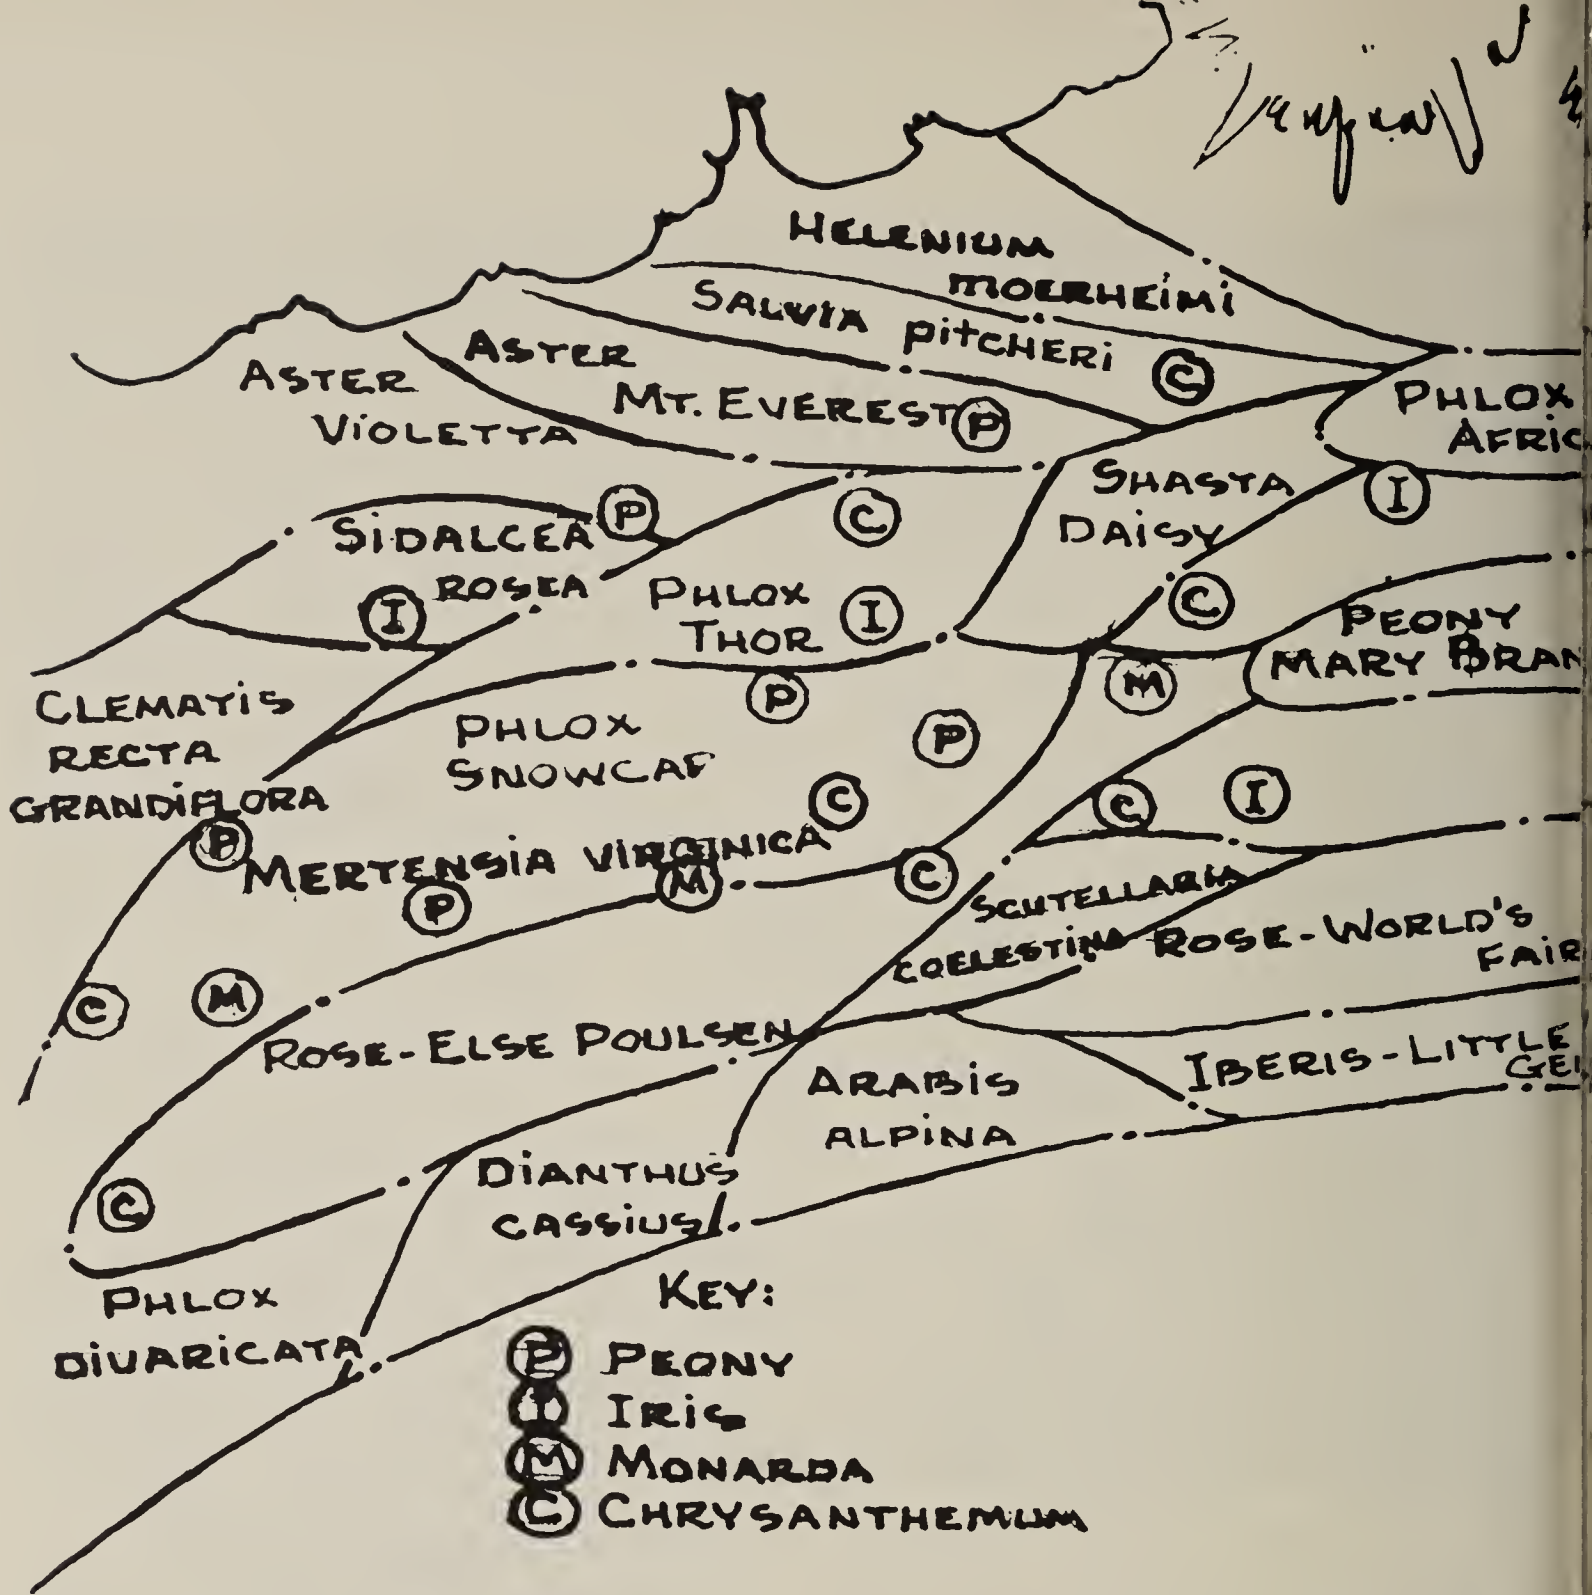 HELENIUM
MOERHEIMI
SALVIA PITCHERI
C
ASTER
MT. EVEREST P
ASTER
VIOLETTA
PHLOX
AFRIC
SHASTA
DAISY
I
SIDALCEA P
ROSEA
I
C
PHLOX
THOR I
C
PEONY
MARY BRAN
M
CLEMATIS
RECTA
GRANDIFLORA
P
PHLOX
SNOWCAP
P
P
C
MERTENSIA VIRGINICA
P
M
C
C
I
SCUTELLARIA
COELESTINA
ROSE-WORLD'S
FAIR
C
M
ROSE-ELSE POULSEN
ARABIS
ALPINA
IBERIS-LITTLE
GE
C
DIANTHUS
CASSIUS
PHLOX
DIVARICATA
KEY:
P PEONY
I IRIS
M MONARDA
C CHRYSANTHEMUM